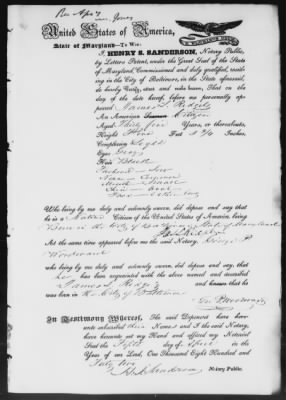 United States of America,
State of Maryland—To Wit:
I, HENRY S. SANDERSON, Notary Public,
by Letters Patent, under the Great Seal of the State
of Maryland, Commissioned and duly qualified, residing
in the City of Baltimore, in the State aforesaid,
do hereby Certify, attest and make known, That on
the day of the date hereof, before me personally appeared
James L. Ridgely
An American Citizen
Aged Thirty five Years, or thereabouts,
Height Five Feet Inches,
Complexion Light
Eyes Grey
Hair Black
Forehead Low
Nose
Mouth
Chin
Face
Who being by me duly and solemnly sworn, did depose and say that
he is a Native Citizen of the United States of America, being
Born in the City of Baltimore State of Maryland
At the same time appeared before me the said Notary, George P.
Woodward
who being by me duly and solemnly sworn, did depose and say, that
he has been acquainted with the above named and described
James L. Ridgely and knows that he was
born in the City of Baltimore
In Testimony Whereof, The said Deponent have hereunto
subscribed their Names and I the said Notary,
have hereunto set my Hand and affixed my Notarial
Seal the Fifth day of April in the
Year of our Lord, One Thousand Eight Hundred and
Forty two
H. S. Sanderson Notary Public.